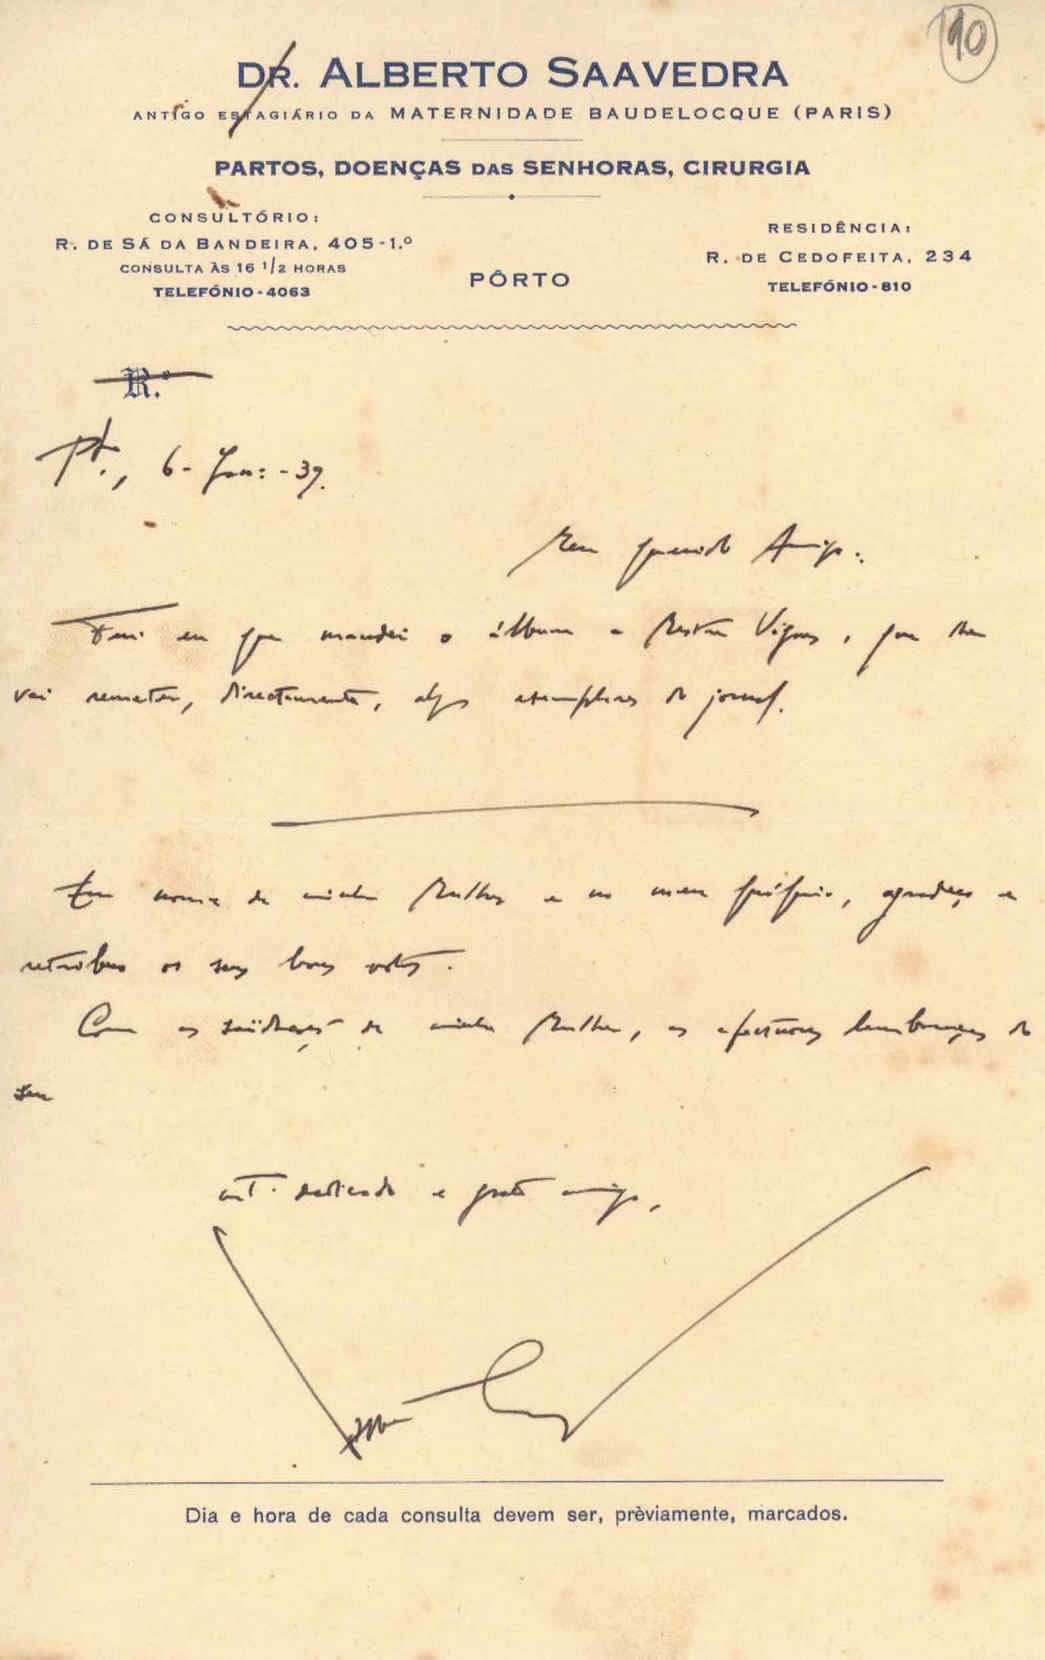 10
DR. ALBERTO SAAVEDRA
ANTIGO ESTAGIÁRIO DA MATERNIDADE BAUDELOCQUE (PARIS)
PARTOS, DOENÇAS DAS SENHORAS, CIRURGIA
CONSULTÓRIO:
R. DE SÁ DA BANDEIRA, 405-1.º
CONSULTA ÀS 16 1/2 HORAS
TELEFÓNIO-4063
PÔRTO
RESIDÊNCIA:
R. DE CEDOFEITA, 234
TELEFÓNIO-810
R.e
Pt., 6-Jan:-39.
Meu querido Amigo:
Fui eu que mandei o álbum a Mestre Vigoço, que lhe
vai remeter, directamente, alguns exemplares do jornal.
Em nome de minha Mulher e no meu próprio, agradeço e
retribuo os seus bons votos.
Com as saüdações de minha Mulher, as afectuosas lembranças do
seu
mt. dedicado e grato amigo,
Dia e hora de cada consulta devem ser, prèviamente, marcados.